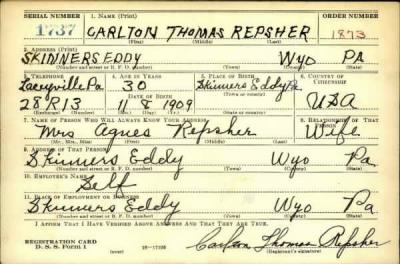 SERIAL NUMBER 1. NAME (Print) ORDER NUMBER
1737 CARLTON THOMAS REPSHER 1873
(First) (Middle) (Last)
2. ADDRESS (Print)
SKINNERS EDDY Wyo PA
(Number and street or R. F. D. number) (Town) (County) (State)
3. TELEPHONE 4. AGE IN YEARS 5. PLACE OF BIRTH 6. COUNTRY OF CITIZENSHIP
Laceyville Pa. 30 Skinners Eddy Pa
DATE OF BIRTH (Town or county)
28R13 11 8 1909 USA
(Exchange) (Number) (Mo.) (Day) (Yr.) (State or country)
7. NAME OF PERSON WHO WILL ALWAYS KNOW YOUR ADDRESS 8. RELATIONSHIP OF THAT PERSON
Mrs Agnes Repsher Wife
(Mr., Mrs., Miss) (First) (Middle) (Last)
9. ADDRESS OF THAT PERSON
Skinners Eddy Wyo Pa
(Number and street or R. F. D. number) (Town) (County) (State)
10. EMPLOYER'S NAME
Self
11. PLACE OF EMPLOYMENT OR BUSINESS
Skinners Eddy Wyo Pa
(Number and street or R. F. D. number) (Town) (County) (State)
I AFFIRM THAT I HAVE VERIFIED ABOVE ANSWERS AND THAT THEY ARE TRUE.
REGISTRATION CARD
D. S. S. Form 1 Carlton Thomas Repsher
(Registrant's signature)